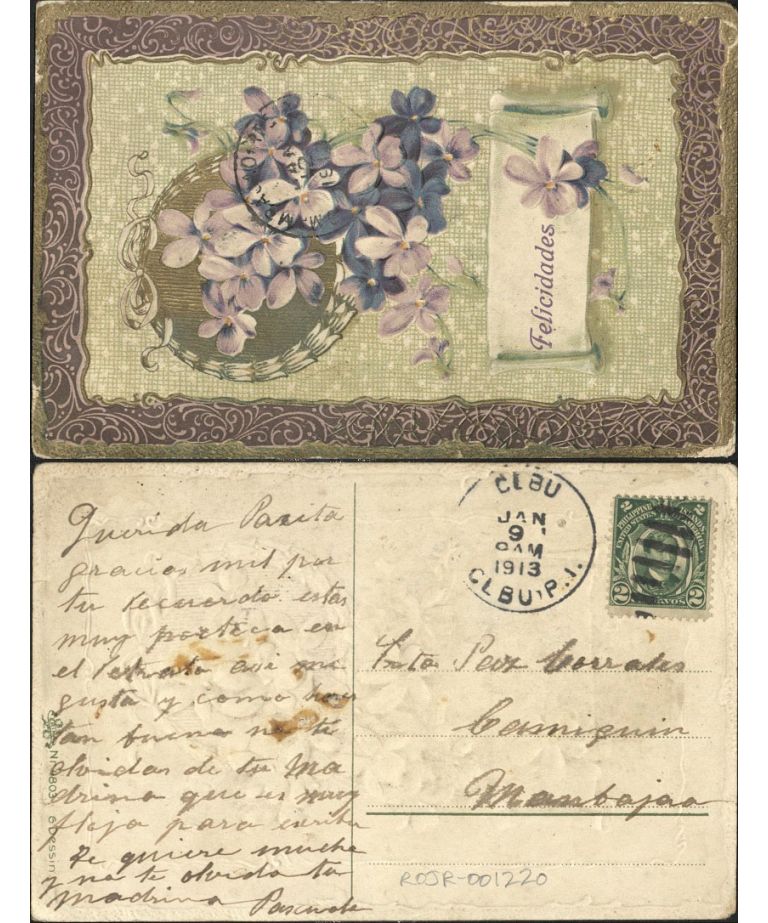 Felicidades
Querida Pazita
gracias mil por
tu recuerdo estas
muy poetica en
el retrato asi me
gusta y como eres
tan buena no te
olvidas de tu Ma
drina que es muy
floja para escribir
te quiere mucho
y no te olvida tu
Madrina Pascuala
CEBU
JAN
9
9AM
1913
CEBU, P.I.
PHILIPPINE ISLANDS
UNITED STATES OF AMERICA
2 CENTAVOS 2
Srta Paz Corrales
Camiguin
Mambajao
Nr. 0803 6 Dessin
ROJR-001220